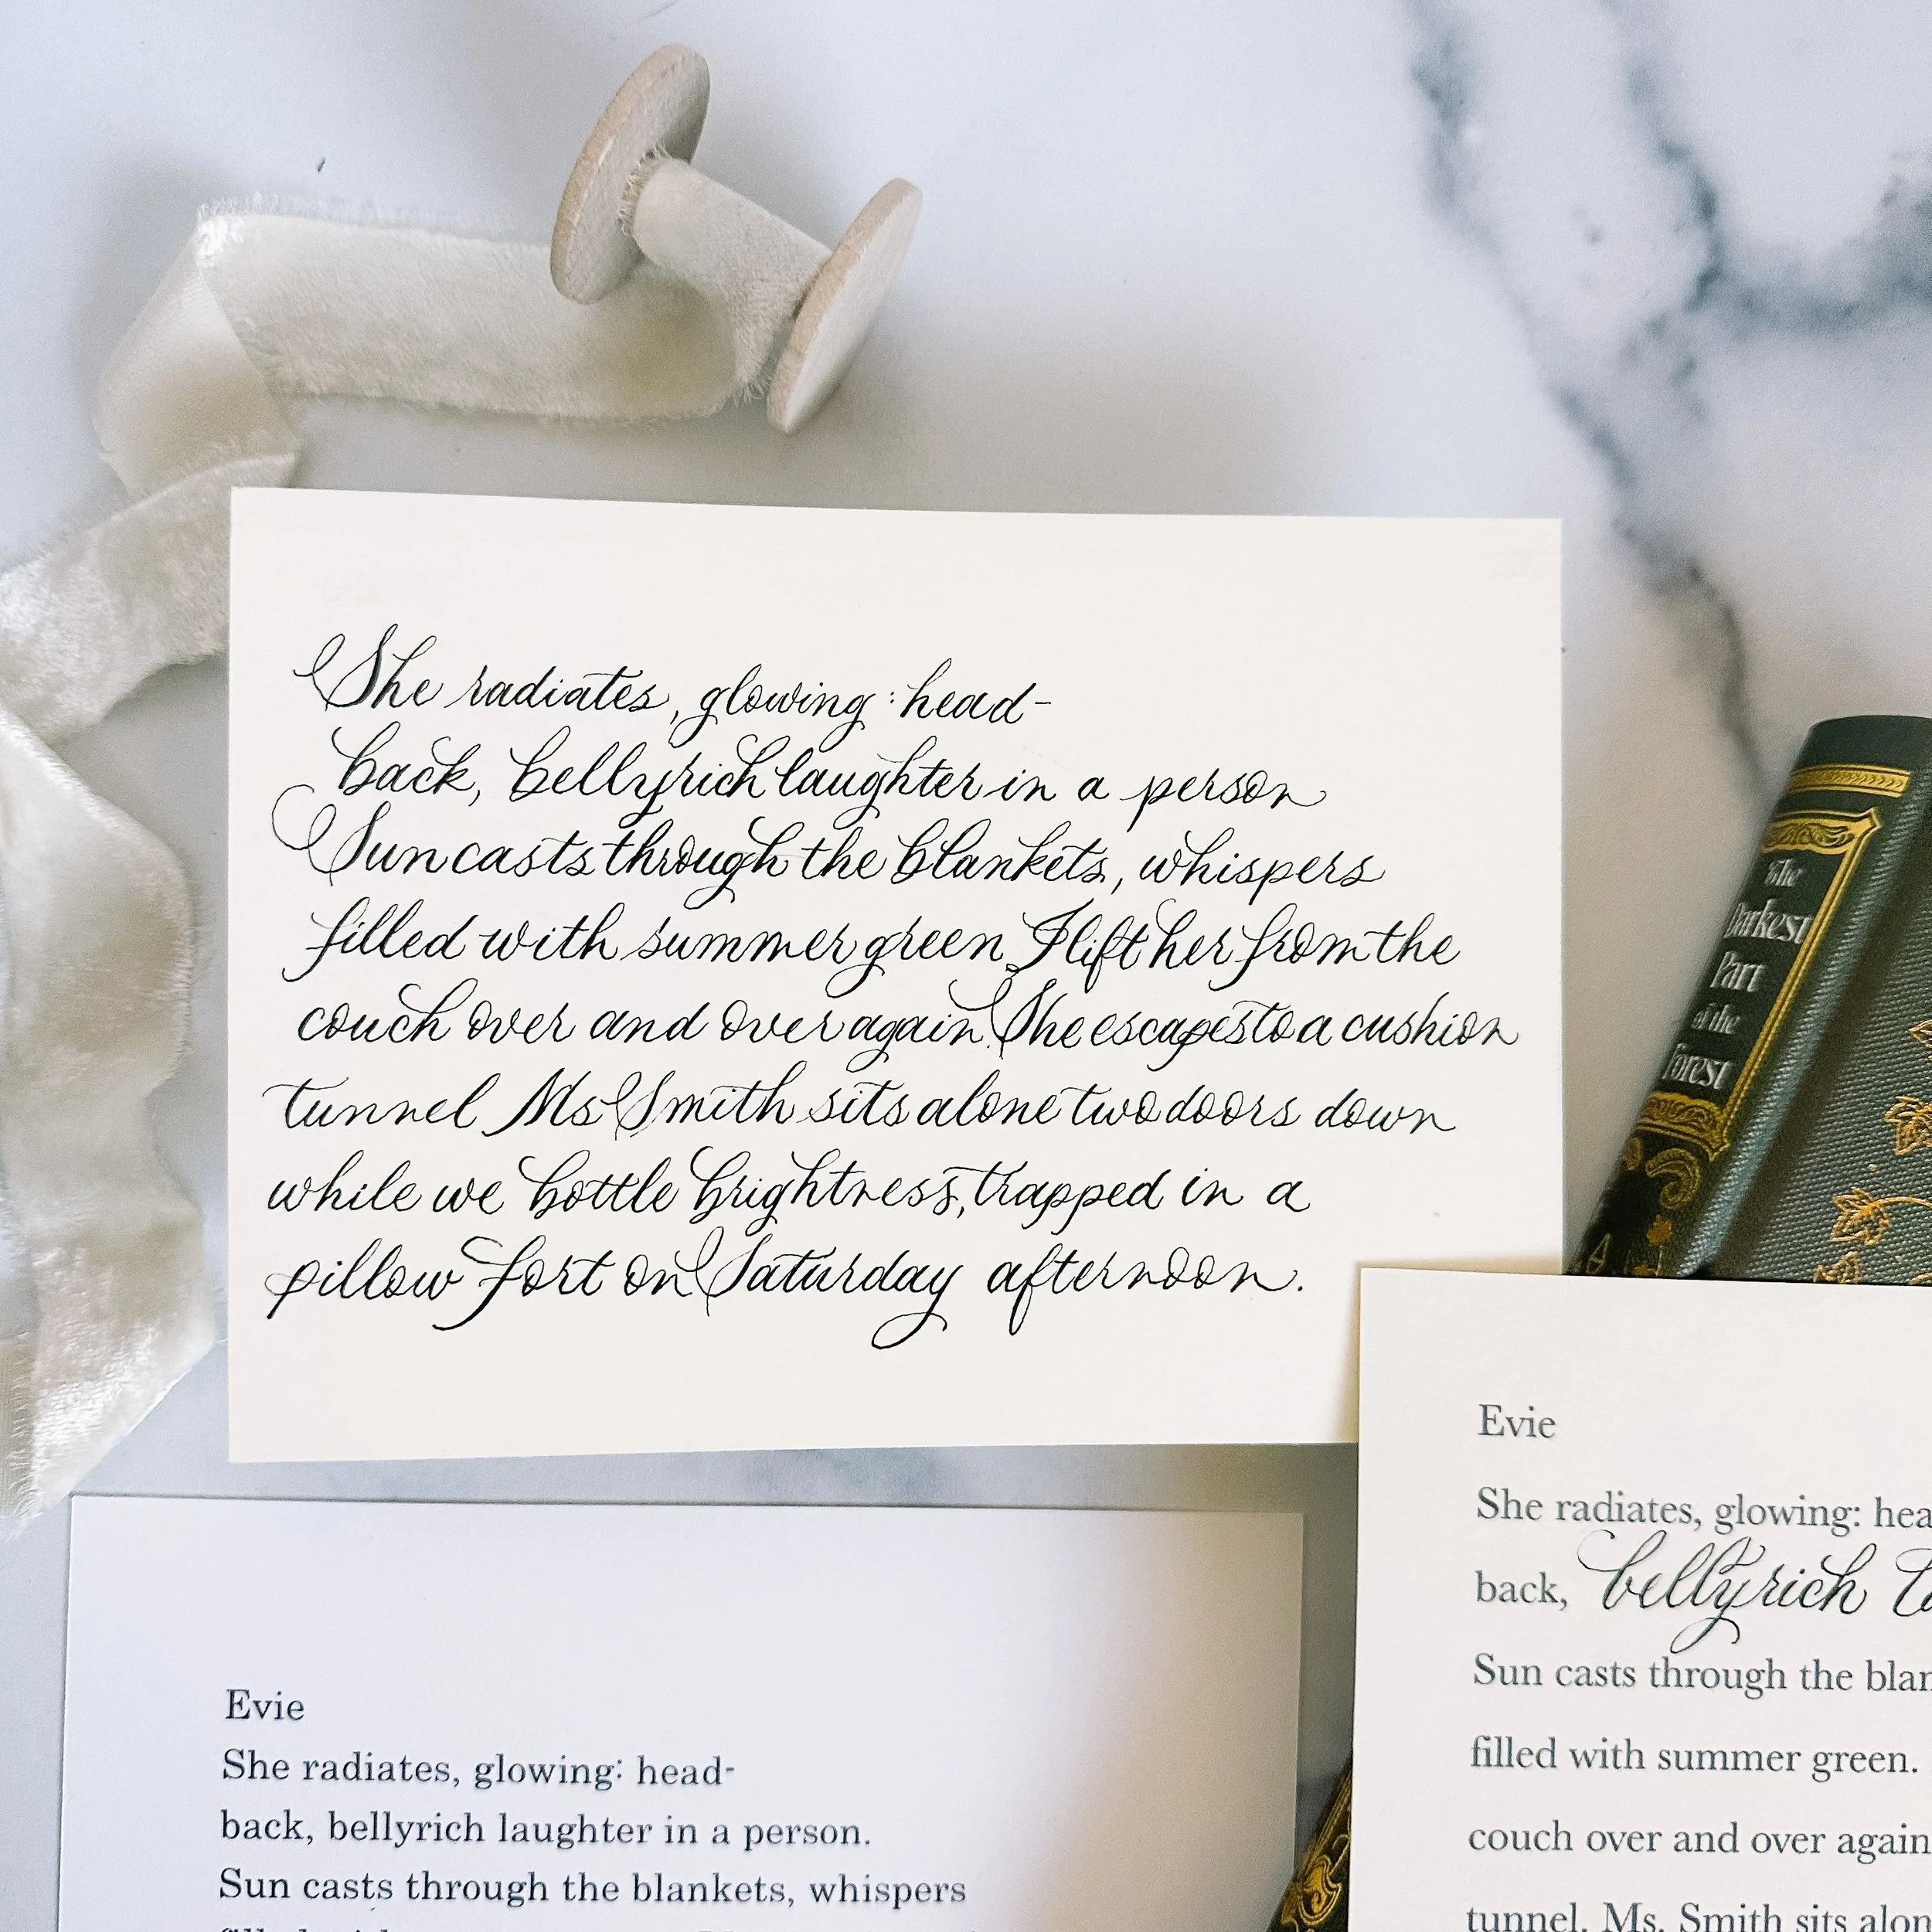 She radiates, glowing: head-
back, bellyrich laughter in a person
Sun casts through the blankets, whispers
filled with summer green I lift her from the
couch over and over again. She escapes to a cushion
tunnel Ms Smith sits alone two doors down
while we bottle brightness, trapped in a
pillow fort on Saturday afternoon.
The
Darkest
Part
of the
Forest
Evie
She radiates, glowing: head-
back, bellyrich laughter in a person.
Sun casts through the blankets, whispers
Evie
She radiates, glowing: hea
back, bellyrich
Sun casts through the blan
filled with summer green.
couch over and over again
tunnel. Ms. Smith sits alon